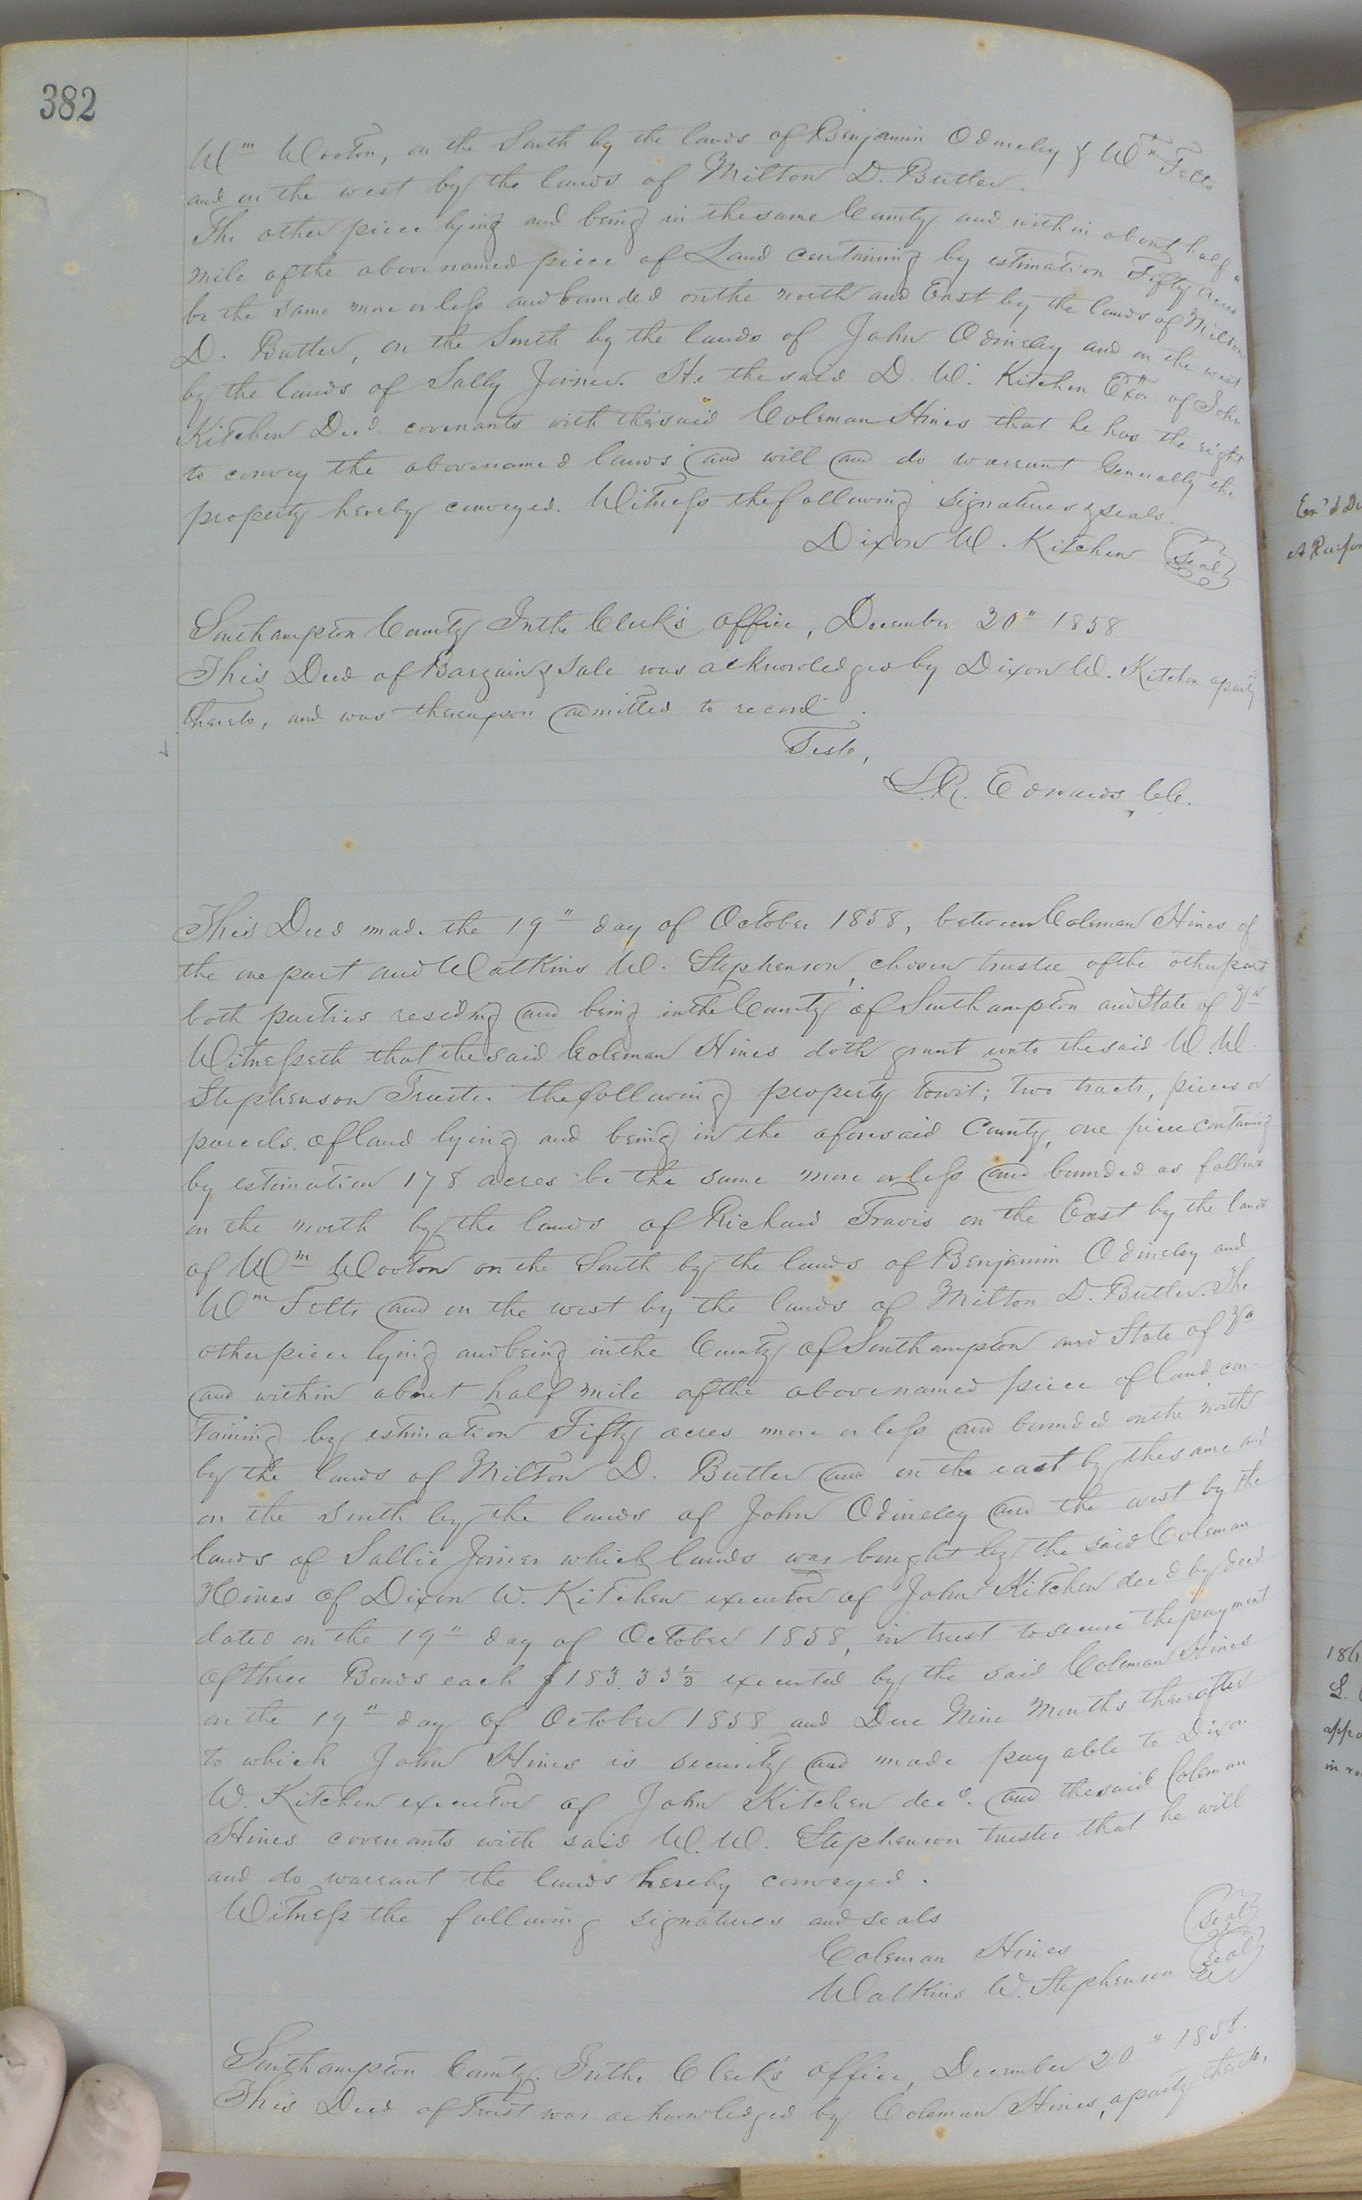 382
Wm Wooton, on the South by the lands of Benjamin Odineley & Wm Felts
and on the west by the lands of Milton D. Butler.
The other piece lying and being in the same County and within about half a
mile of the above named piece of Land containing by estimation Fifty acres
be the same more or less and bounded on the north and East by the lands of Milton
D. Butler, on the South by the lands of John Odineley and on the west
by the lands of Sally Joiner. He the said D. W. Kitchen Exor of John
Kitchen Decd. covenants with the said Coleman Hines that he has the right
to convey the above named lands and will and do warrant Generally the
property hereby conveyed. Witness the following signatures & seals.
Dixon W. Kitchen (seal)
Southampton County In the Clerk's office, December 20" 1858
This Deed of Bargain & Sale was acknowledged by Dixon W. Kitchen a party
thereto, and was thereupon admitted to record.
Teste,
L.R. Edwards, Clk.
This Deed made the 19" day of October 1858, between Coleman Hines of
the one part and Watkins W. Stephenson, chosen trustee of the other part
both parties residing and being in the County of Southampton and State of Va
Witnesseth that the said Coleman Hines doth grant unto the said W. W.
Stephenson Trustee the following property towit; two tracts, pieces or
parcels. of land lying and being in the aforesaid County, one piece containing
by estimation 178 acres be the same more or less and bounded as follows
on the north by the lands of Richard Travis on the East by the lands
of Wm Wooton on the South by the lands of Benjamin Odineley and
Wm Felts and on the west by the lands of Milton D. Butler. The
other piece lying and being in the County of Southampton and State of Va
and within about half mile of the above named piece of land, con-
taining by estimation Fifty acres more or less and bounded on the north
by the lands of Milton D. Butler and on the east by the same and
on the south by the lands of John Odineley and the west by the
lands of Sallie Joiner which lands was bought by the said Coleman
Hines of Dixon W. Kitchen executor of John Kitchen decd by deed
dated on the 19" day of October 1858, in trust to secure the payment
of three Bonds each $183.33⅓ executed by the said Coleman Hines
on the 19" day of October 1858 and Due Nine Months thereafter
to which John Hines is security and made payable to Dixon
W. Kitchen executor of John Kitchen decd. and the said Coleman
Hines covenants with said W. W. Stephenson trustee that he will
and do warrant the lands hereby conveyed.
Witness the following signatures and seals
Coleman Hines (seal)
Watkins W. Stephenson (seal)
Southampton County. In the Clerk's office, December 20" 1858.
This Deed of Trust was acknowledged by Coleman Hines, a party thereto,